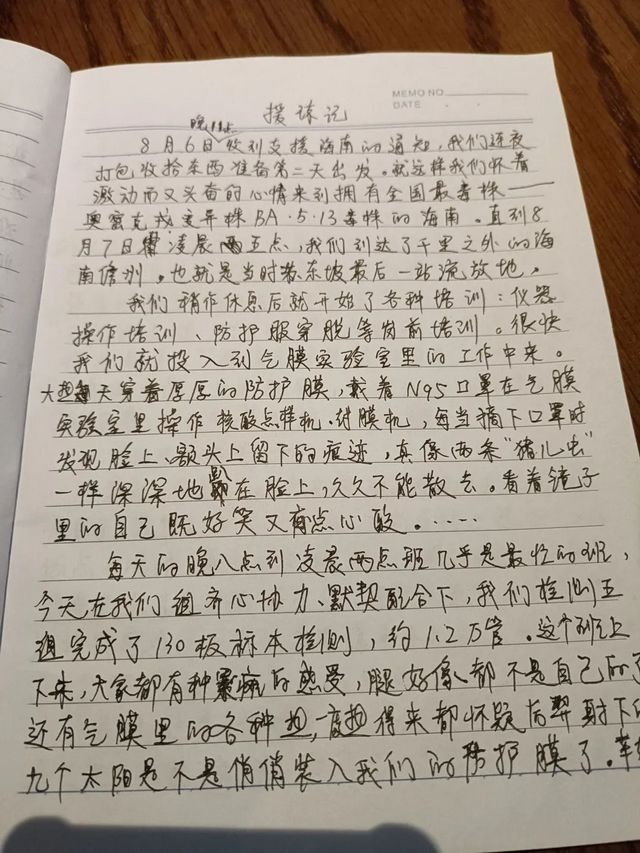 MEMO NO.
DATE
援琼记
8月6日晚11点收到支援海南的通知，我们连夜
打包收拾东西准备第二天出发。就这样我们怀着
激动而又兴奋的心情来到拥有全国最毒株——
奥密克戎变异株BA·5·13毒株的海南。直到8
月7日凌晨五点，我们到达了千里之外的海
南儋州。也就是当时苏东坡最后一站流放地。
我们稍作休息后就开始了各种培训：仪器
操作培训、防护服穿脱等岗前培训。很快
我们就投入到气膜实验室里的工作中来。
大热天穿着厚厚的防护膜，戴着N95口罩在气膜
实验室里操作核酸点样机、封膜机，每当摘下口罩时
发现脸上、额头上留下的痕迹，真像两条“猪儿虫”
一样深深地趴在脸上，久久不能散去。看着镜子
里的自己既好笑又有点心酸。……
每天的晚八点到凌晨两点班几乎是最忙的班，
今天在我们组齐心协力、默契配合下，我们检测五
组完成了130板标本检测，约1.2万管。这个班上
下来，大家都有种的感受，腿好像都不是自己的了
还有气膜里的各种热，热得来都怀疑后羿射下的
九个太阳是不是悄悄装入我们的防护膜了。